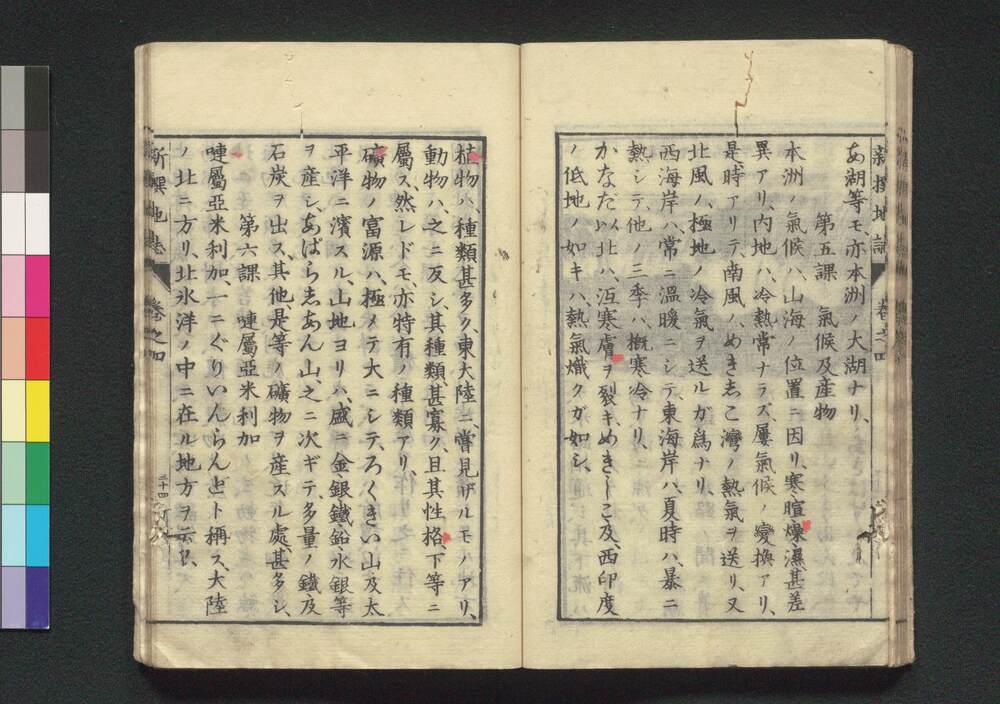 新撰地誌 卷之四
あ湖等モ、亦本洲ノ大湖ナリ、
第五課 氣候及産物
本洲ノ氣候ハ、山海ノ位置ニ因リ、寒暄燥濕甚差
異アリ、内地ハ、冷熱常ナラズ、屢氣候ノ變換アリ、
是、時アリテ、南風ノ、めきしこ灣ノ熱氣ヲ送リ、又
北風ノ、極地ノ冷氣ヲ送ルガ爲ナリ、
西海岸ハ、常ニ溫暖ニシテ、東海岸ハ、夏時ハ、暴ニ
熱シテ、他ノ三季ハ、槪寒冷ナリ、
かなだ以北ハ、沍寒膚ヲ裂キ、めきしこ及、西印度
ノ低地ノ如キハ、熱氣熾クガ如シ、
植物ハ、種類甚多ク、東大陸ニ、嘗見ザルモノアリ、
動物ハ之ニ反シ、其種類、甚寡ク、且其性格、下等ニ
屬ス、然レドモ、亦特有ノ種類アリ、
礦物ノ富源ハ、極メテ大ニシテ、ろくきい山及太
平洋ニ濱スル、山地ヨリハ、盛ニ金、銀、鐵、鉛、水銀等
ヲ産シ、あばらちあん山、之ニ次ギテ、多量ノ鐵及
石炭ヲ出ス、其他、是等ノ礦物ヲ産スル處、甚多シ、
第六課 嗹屬亞米利加
嗹屬亞米利加、一ニぐりいんらんどト稱ス、大陸
ノ北ニ方リ、北氷洋ノ中ニ在ル地方ヲ云ヒ、
新撰地誌 卷之四 三十四